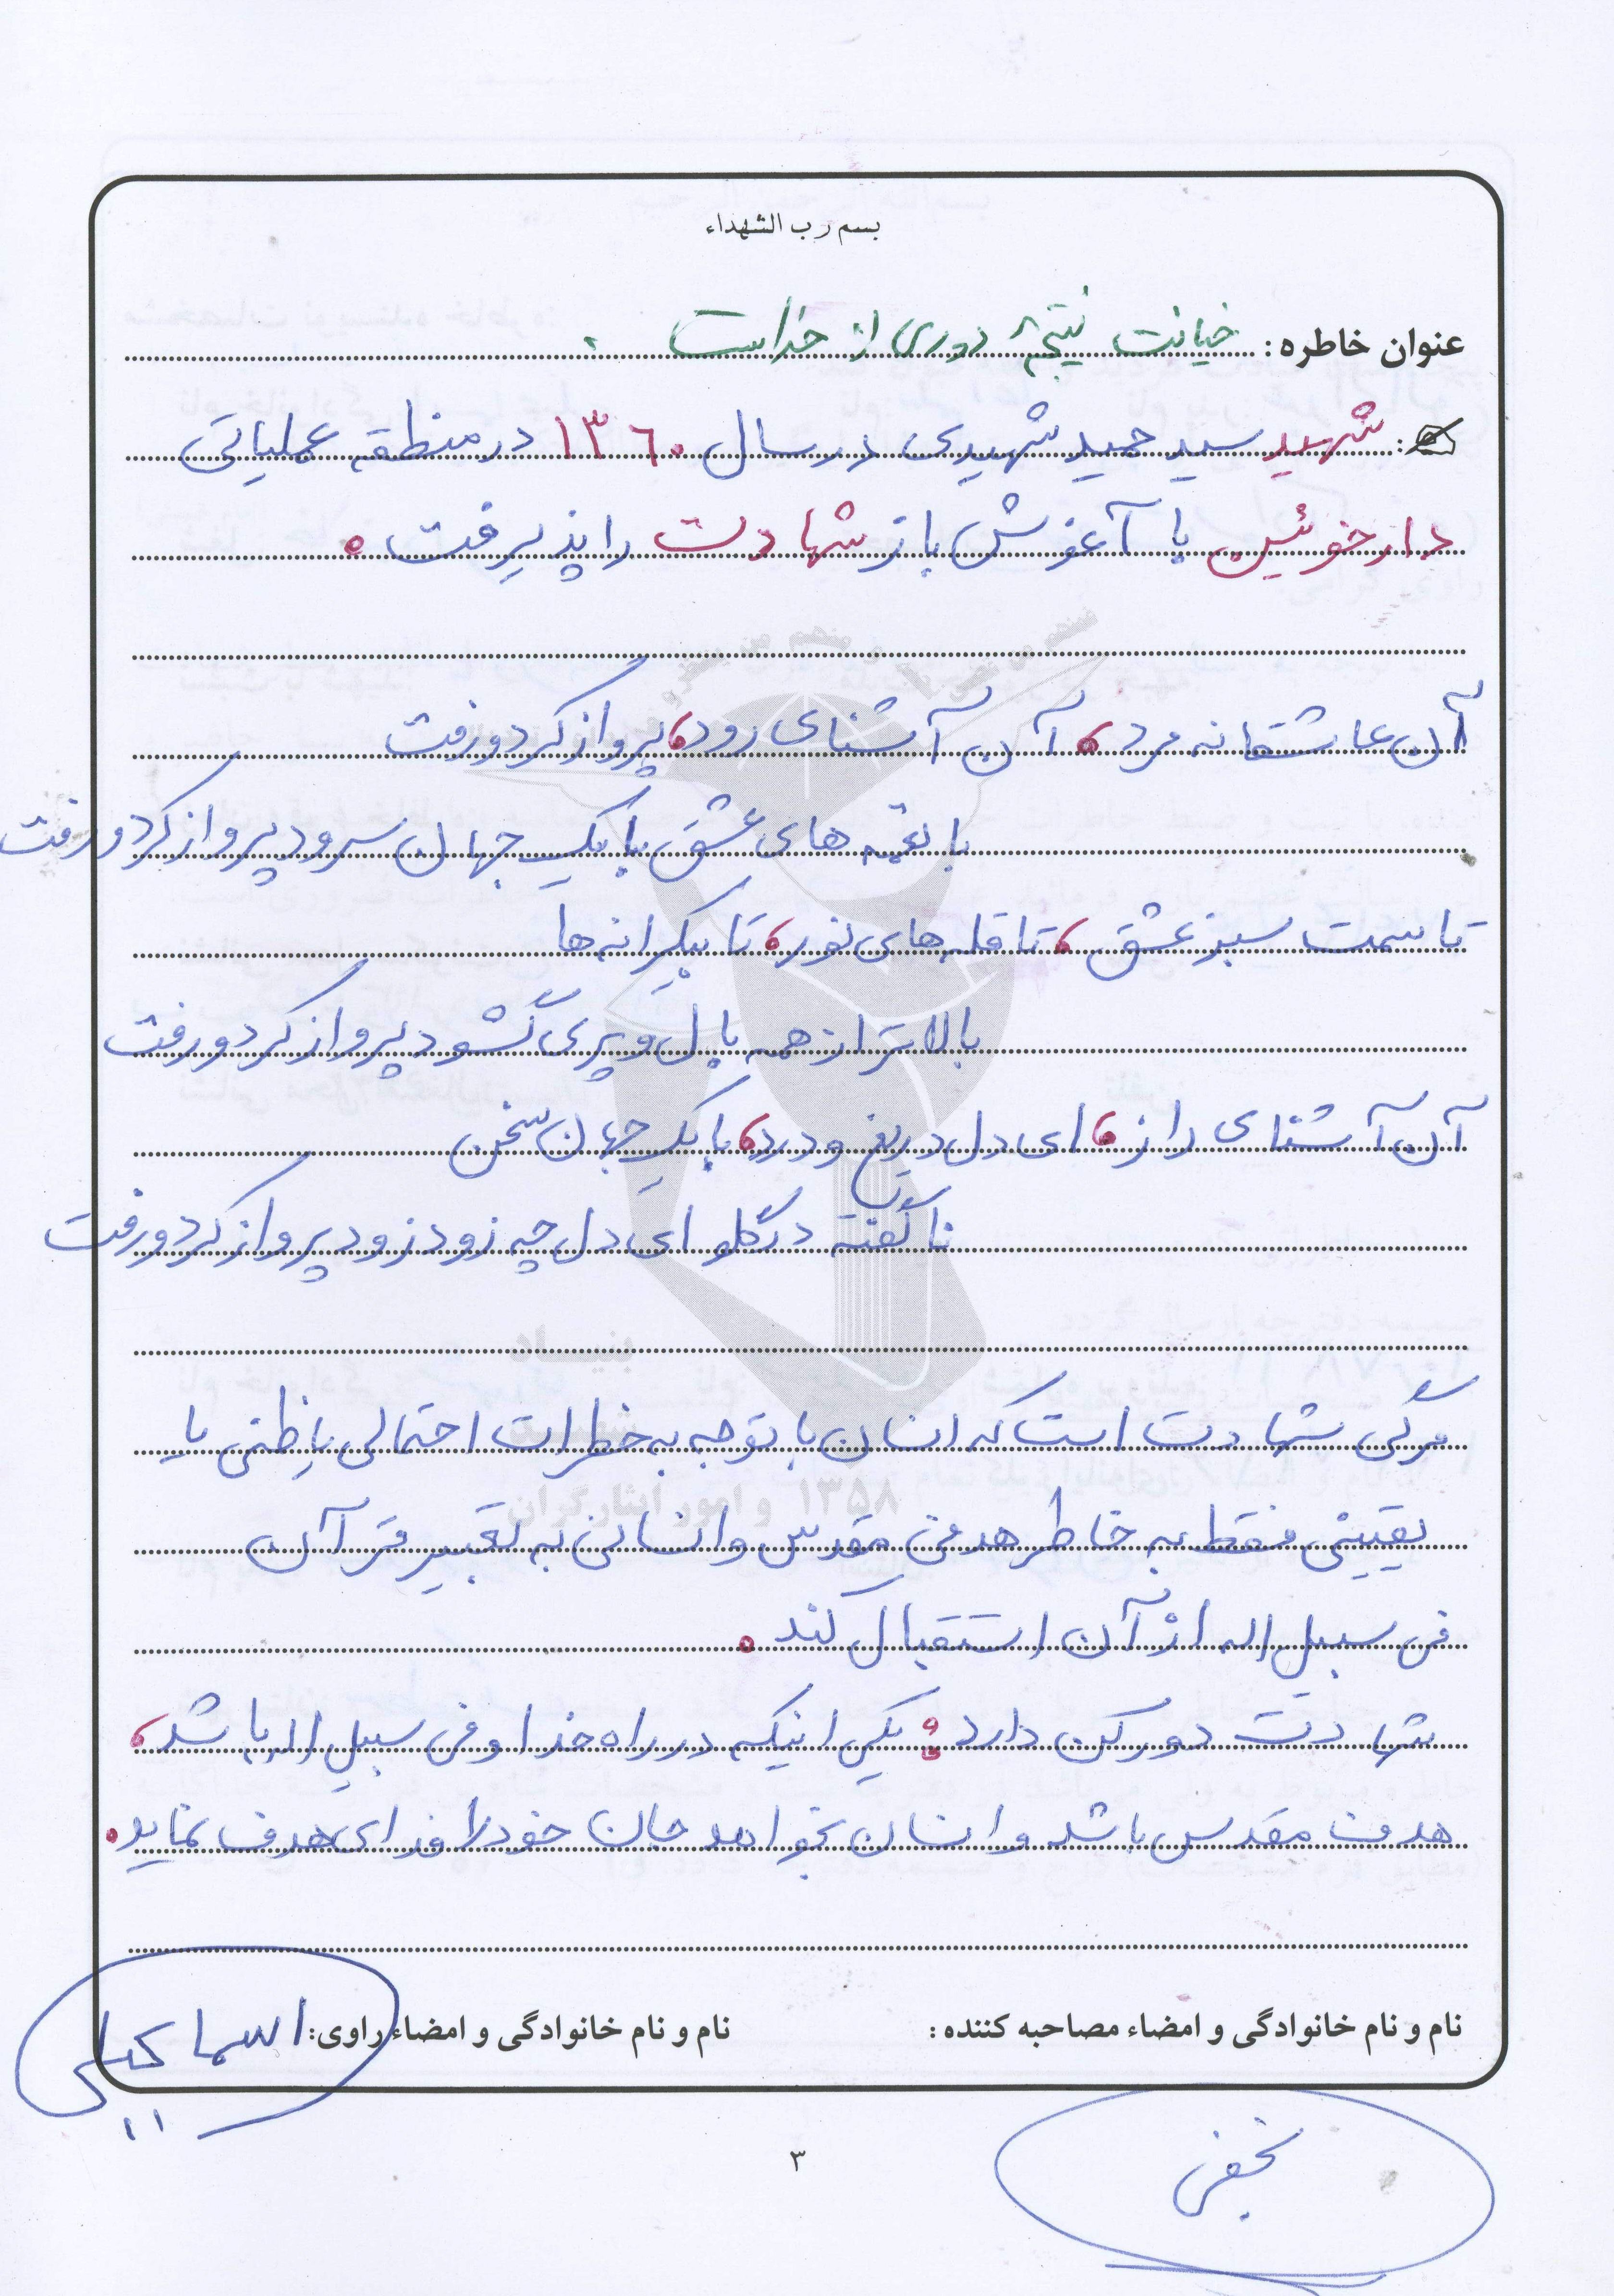 بسم رب الشهداء
عنوان خاطره: خیانت نتیجهٔ دوری از خداست .
شهید سید حمید شهیدی در سال ۱۳۶۰ در منطقه عملیاتی
دارخوئین با آغوش باز شهادت را پذیرفت .
آن عاشقانه مرد، آن آشنای رود، پرواز کرد و رفت
با نغمه های عشق با یک جهان سرود پرواز کرد و رفت
تا سمت سبز عشق، تا قله های نور، تا بیکرانه ها
بالاتر از همه بال و پری گشود پرواز کرد و رفت
آن آشنای راز، ای دل دریغ و درد، با یک جهان سخن
ناگفته در گلو ای دل چه زود زود پرواز کرد و رفت
مرگی شهادت است که انسان با توجه به خطرات احتمالی یا ظنی یا
یقینی فقط به خاطر هدفی مقدس و انسانی به تعبیر قرآن
فی سبیل اله از آن استقبال کند .
شهادت دو رکن دارد : یکی اینکه در راه خدا و فی سبیل اله باشد،
هدف مقدس باشد و انسان بخواهد جان خود را فدای هدف نماید.
نام و نام خانوادگی و امضاء مصاحبه کننده : نام و نام خانوادگی و امضاء راوی: اسماعیلی
نجفی
۳